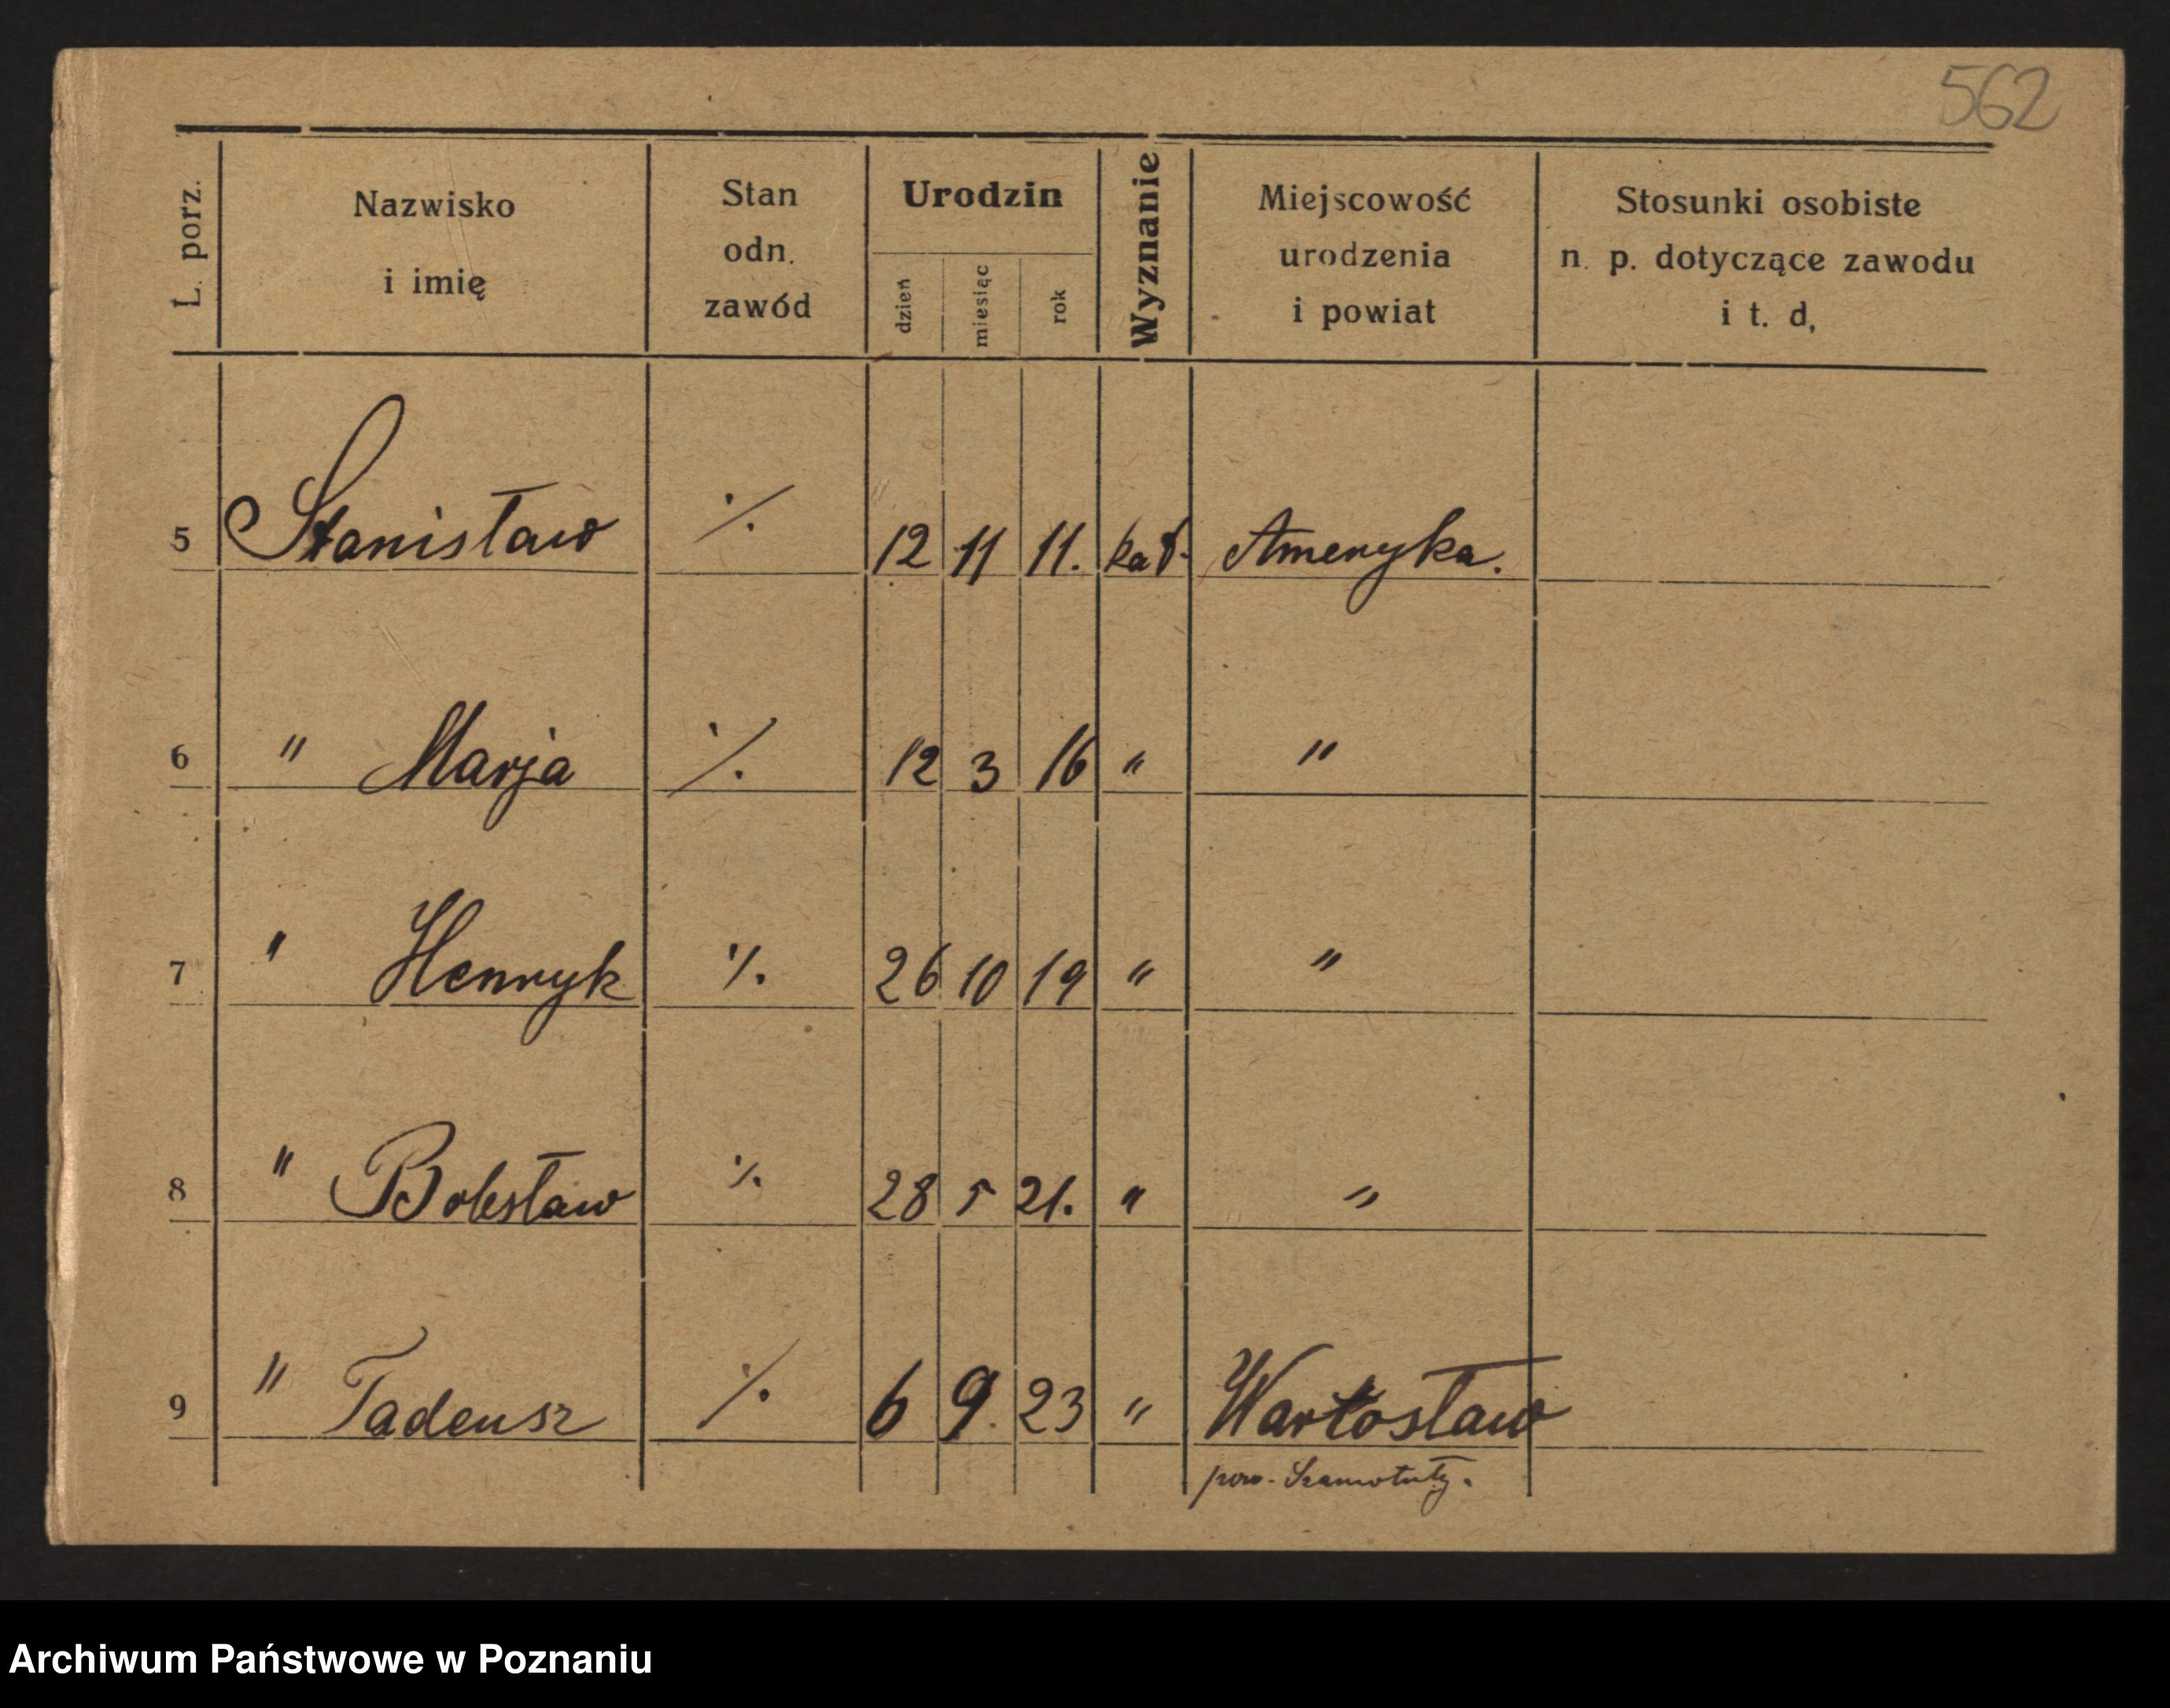 562
L. porz.
Nazwisko
i imię
Stan
odn.
zawód
Urodzin
dzień
miesiąc
rok
Wyznanie
Miejscowość
urodzenia
i powiat
Stosunki osobiste
n. p. dotyczące zawodu
i t. d,
5 Stanisław ·/. 12 11 11. kat. Ameryka.
6 " Marja ·/. 12 3 16 " "
7 " Henryk ·/. 26 10 19 " "
8 " Bolesław ·/. 28 5 21. " "
9 " Tadeusz ·/. 6 9. 23 " Wartosław
pow. Szamotuły.
Archiwum Państwowe w Poznaniu